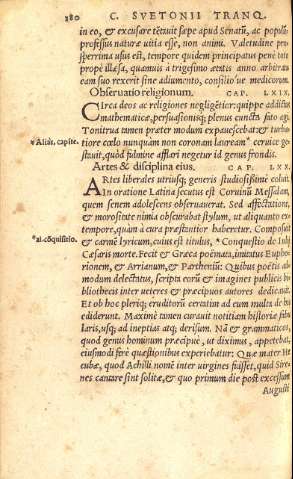 280 C. SVETONII TRANQ.
in eo, & excusare tẽtauit sæpe apud Senatũ, ac populũ
professus naturæ uitia esse, non animi. Valetudine pro
sperrima usus est, tempore quidem principatus penè toto
propè illæsa, quamuis à trigesimo ætatis anno arbitratu
eam suo rexerit sine adiumento, consilio´ue medicorum.
Obseruatio religionum. CAP. LXIX.
Circa deos ac religiones negligẽtior: quippe addictus
mathematicæ, persuasionisq; plenus cuncta fato agi.
Tonitrua tamen præter modum expauescebat: & turba
*Aliâs, capite.
tiore cœlo nunquam non coronam lauream* ceruice ge=
stauit, quòd fulmine afflari negetur id genus frondis.
Artes & disciplina eius. CAP. LXX.
Artes liberales utriusq; generis studiosissimè coluit.
In oratione Latina secutus est Coruinũ Messalam,
quem senem adolescens obseruauerat. Sed affectatione,
& morositate nimia obscurabat stylum, ut aliquanto ex=
tempore, quàm à cura præstantior haberetur. Composuit
*al. cõquisitio.
& carmẽ lyricum, cuius est titulus, *Conquestio de Iulij
Cæsaris morte. Fecit & Græca poëmata, imitatus Eupho
rionem, & Arrianum, & Partheniũ: Quibus poëtis ad=
modum delectatus, scripta eorũ & imagines publicis bi
bliothecis inter ueteres & præcipuos autores dedicauit.
Et ob hoc pleriq; eruditorũ certatim ad eum multa de his
ediderunt. Maximè tamen curauit notitiam historiæ fabu
laris, usq; ad ineptias atq; derisum. Nã & grammaticos,
quod genus hominum præcipuè, ut diximus, appetebat,
eiusmodi ferè quæstionibus experiebatur: Quæ mater He
cubæ, quod Achilli nomẽ inter uirgines fuisset, quid Sire=
nes cantare sint solitæ, & quo primum die post excessum
Augusti